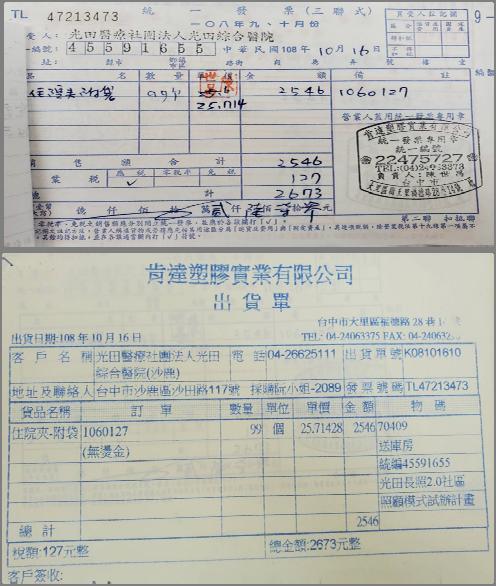 TL 47213473
統一發票(三聯式)
一〇八年九、十月份
買受人註記欄
9-
受人:光田醫療社團法人光田綜合醫院
一編號:45591655 中華民國108年10月16日
址:
品名 數量 單價 金額 備註
99個 25.714 2546 1060127
營業人蓋用統一發票專用章
肯達塑膠實業有限公司
統一發票專用章
統一編號
22475727
負責人:陳世鴻
台中市
銷售額合計 2546
營業稅 應稅 零稅率 免稅 127
✓
總計 2673
億仟佰拾萬貳仟陸佰柒拾參元
第二聯 扣抵聯
肯達塑膠實業有限公司
出貨單
台中市大里區福德路28巷1
出貨日期:108年10月16日
TEL: 04-24063375 FAX: 04-2406326
客戶名稱 光田醫療社團法人光田綜合醫院(沙鹿) 電話 04-26625111 出貨單號 K08101610
地址及聯絡人 台中市沙鹿區沙田路117號 採購阮小姐-2089 發票號碼 TL47213473
貨品名稱 訂單 數量 單位 單價 金額 物碼
住院夾-附袋 1060127 99 個 25.71428 2546 70409
(無燙金) 送庫房
統編45591655
光田長照2.0社區
照顧模式試辦計畫
總計 2546
稅額:127元整 總金額:2673元整
客戶簽收: